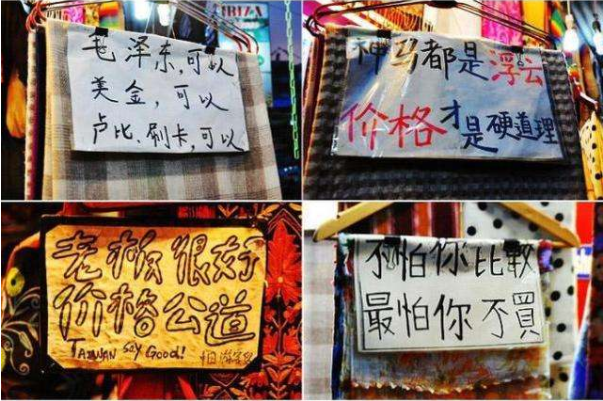 IBIZA
毛泽东,可以
美金,可以
卢比、刷卡,可以
神马都是浮云
价格才是硬道理
老板很好
价格公道
TAIWAN SAY GOOD!
不怕你比較
最怕你不買